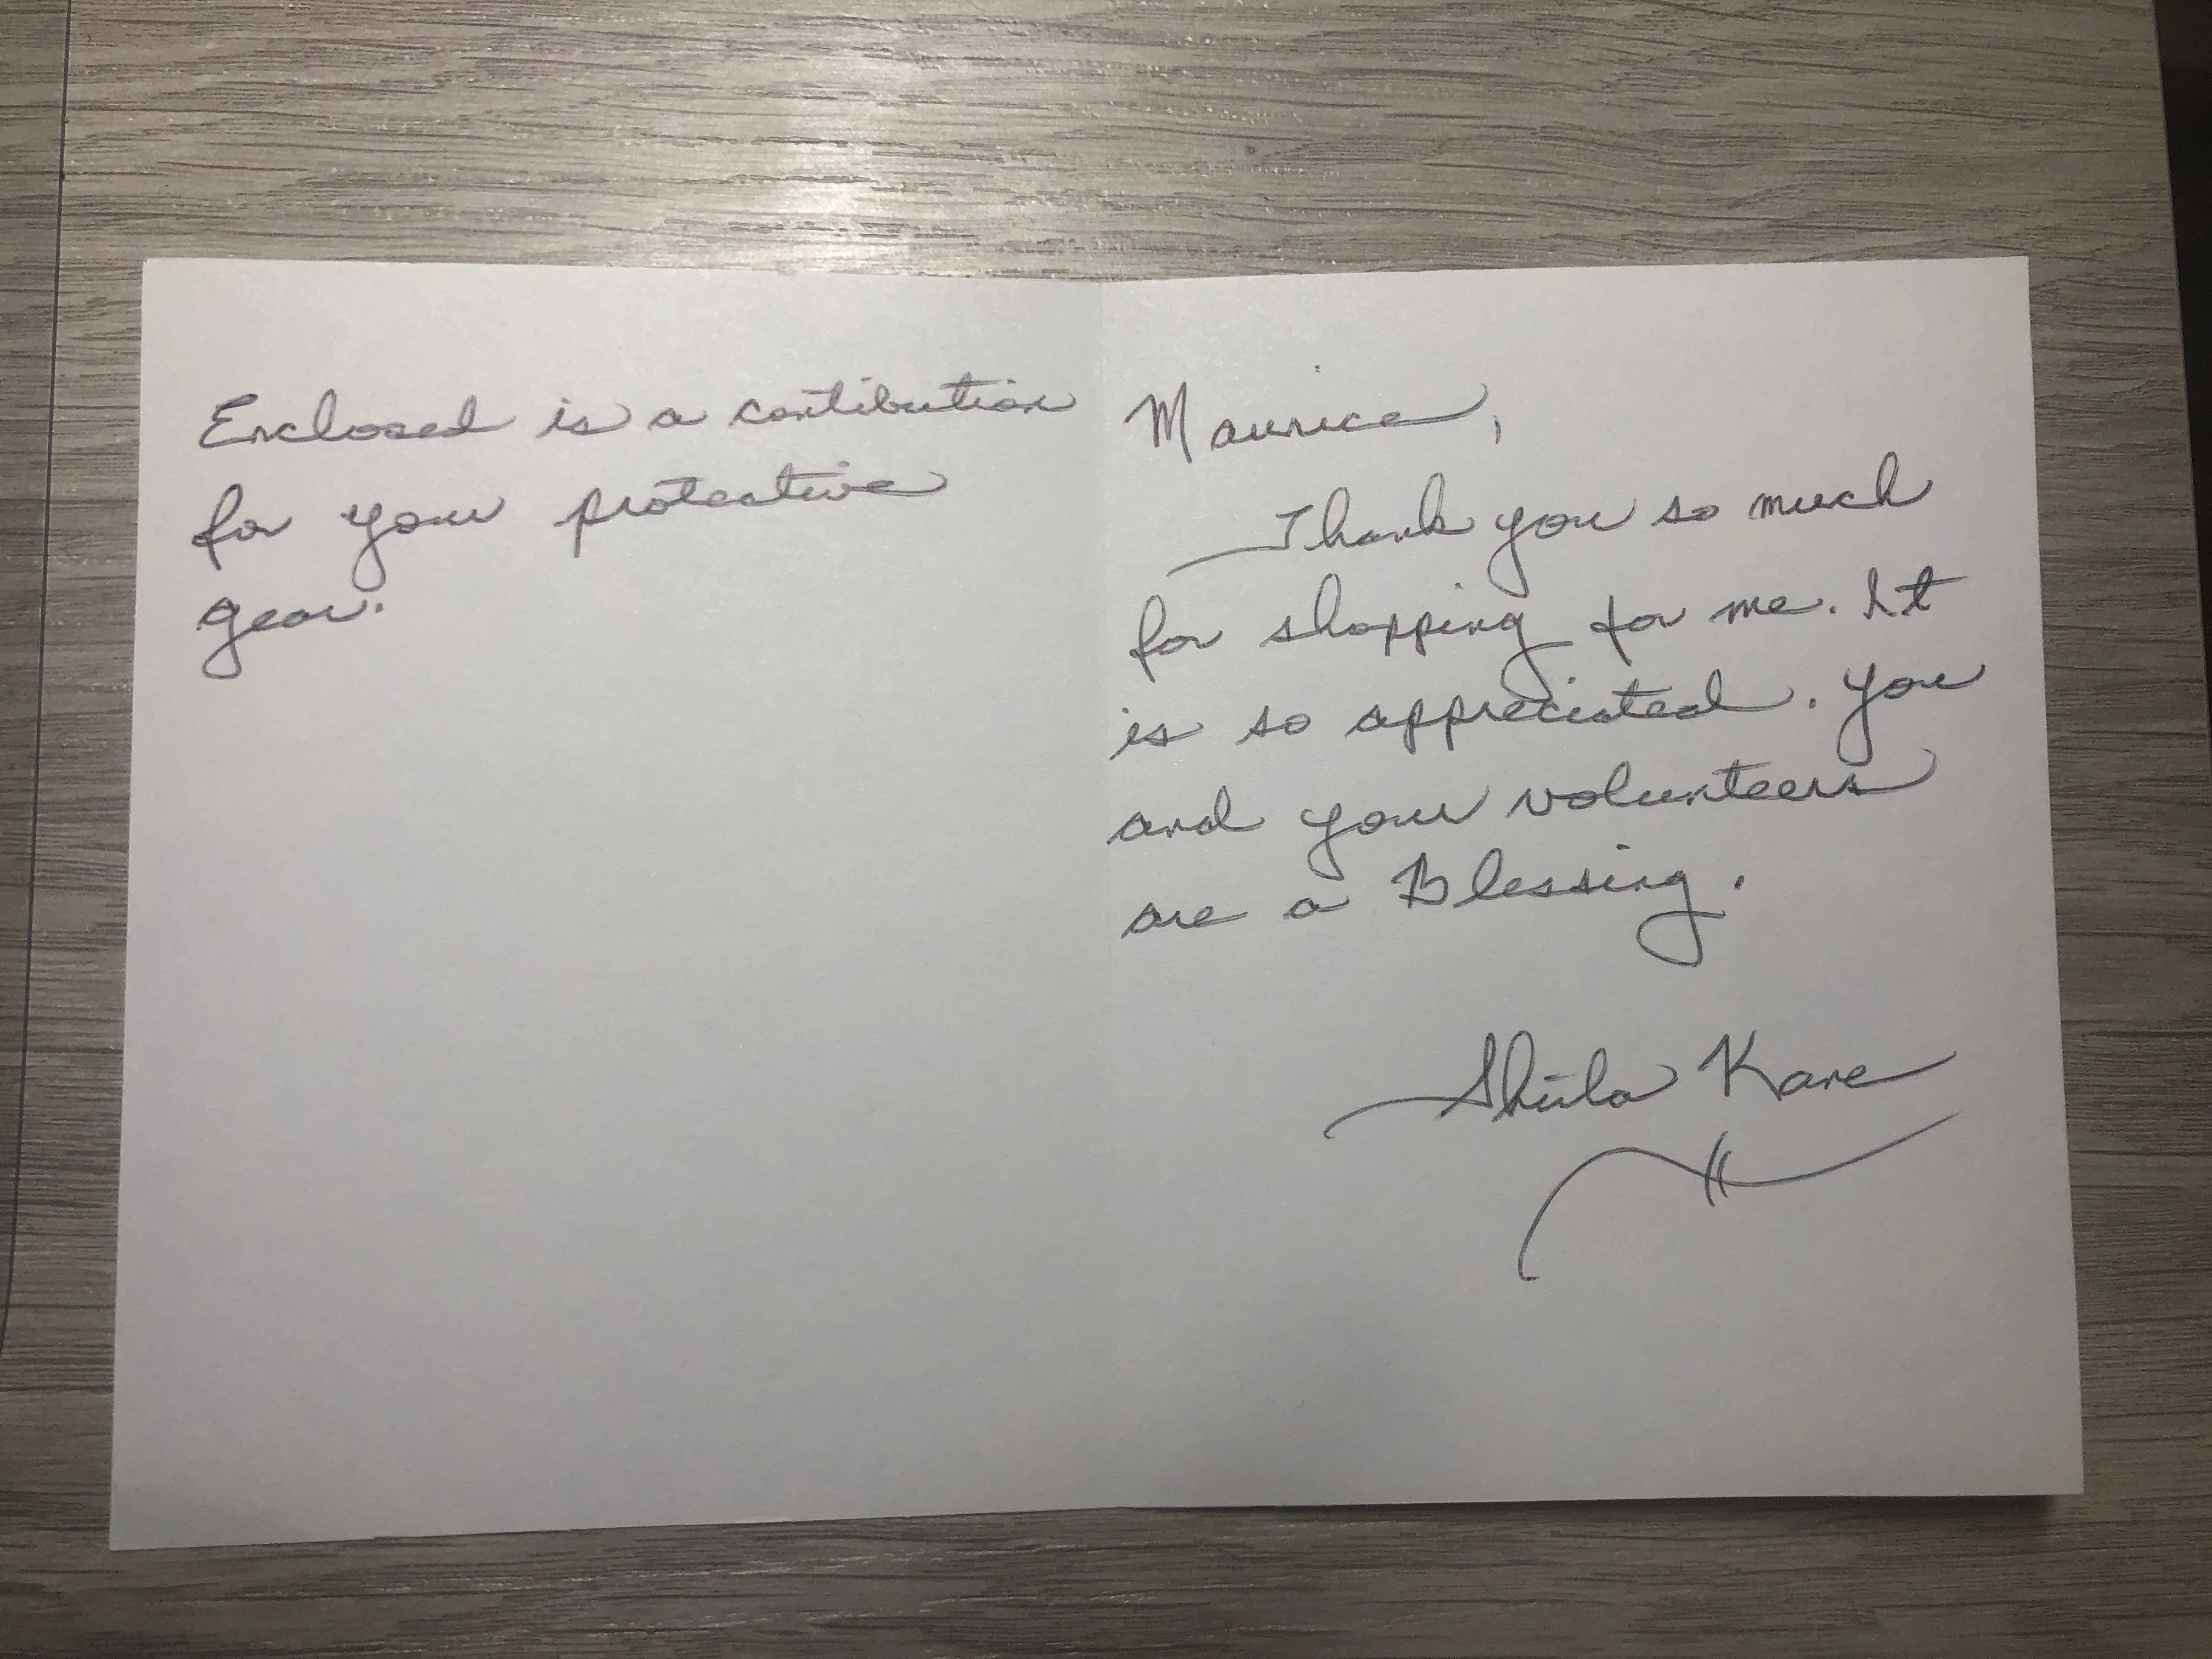 Enclosed is a contibution
for your protective
gear.
Maurice,
Thank you so much
for shopping for me. It
is so appreciated. You
and your volunteers
are a Blessing.
Sheila Kane